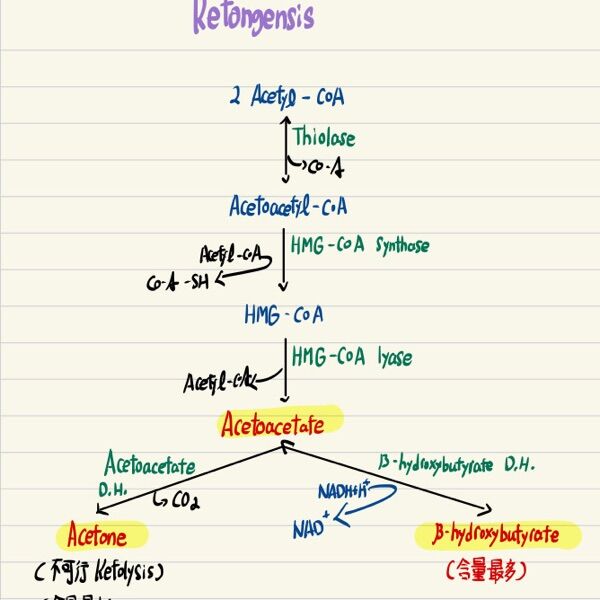 Ketongensis
2 Acetyl-CoA
Thiolase
CO-A
Acetoacetyl-CoA
HMG-CoA Synthase
Acetyl-CoA
CO-A-SH
HMG-CoA
HMG-CoA lyase
Acetyl-CoA
Acetoacetate
Acetoacetate
D.H.
CO2
β-hydroxybutyrate D.H.
NADH+H+
NAD+
Acetone
β-hydroxybutyrate
(不可行 Ketolysis)
(含量最多)